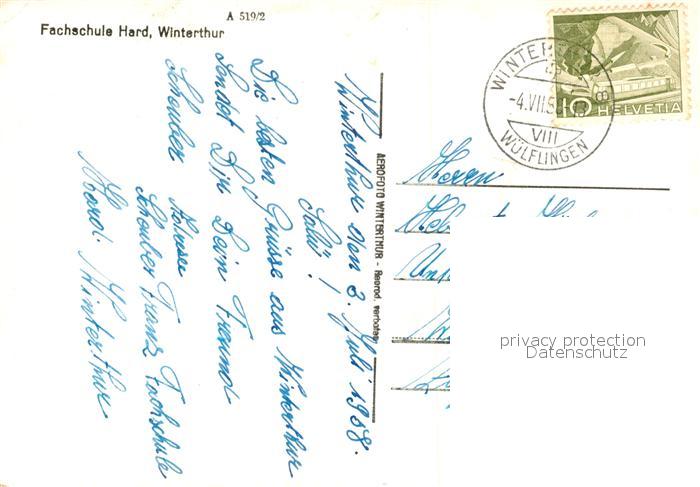 A 519/2
Fachschule Hard, Winterthur
Winterthur den 3. Juli 1958.
Salü!
Die besten Grüsse aus Winterthur
Sendet Dir Dein Freund
Scheuber
Scheuber Franz Fachschule
Hard. Winterthur
AEROFOTO WINTERTHUR - Reprod. verboten
WINTERTHUR
-4.VII.5
VIII
WÜLFLINGEN
10 HELVETIA
Herrn
privacy protection
Datenschutz